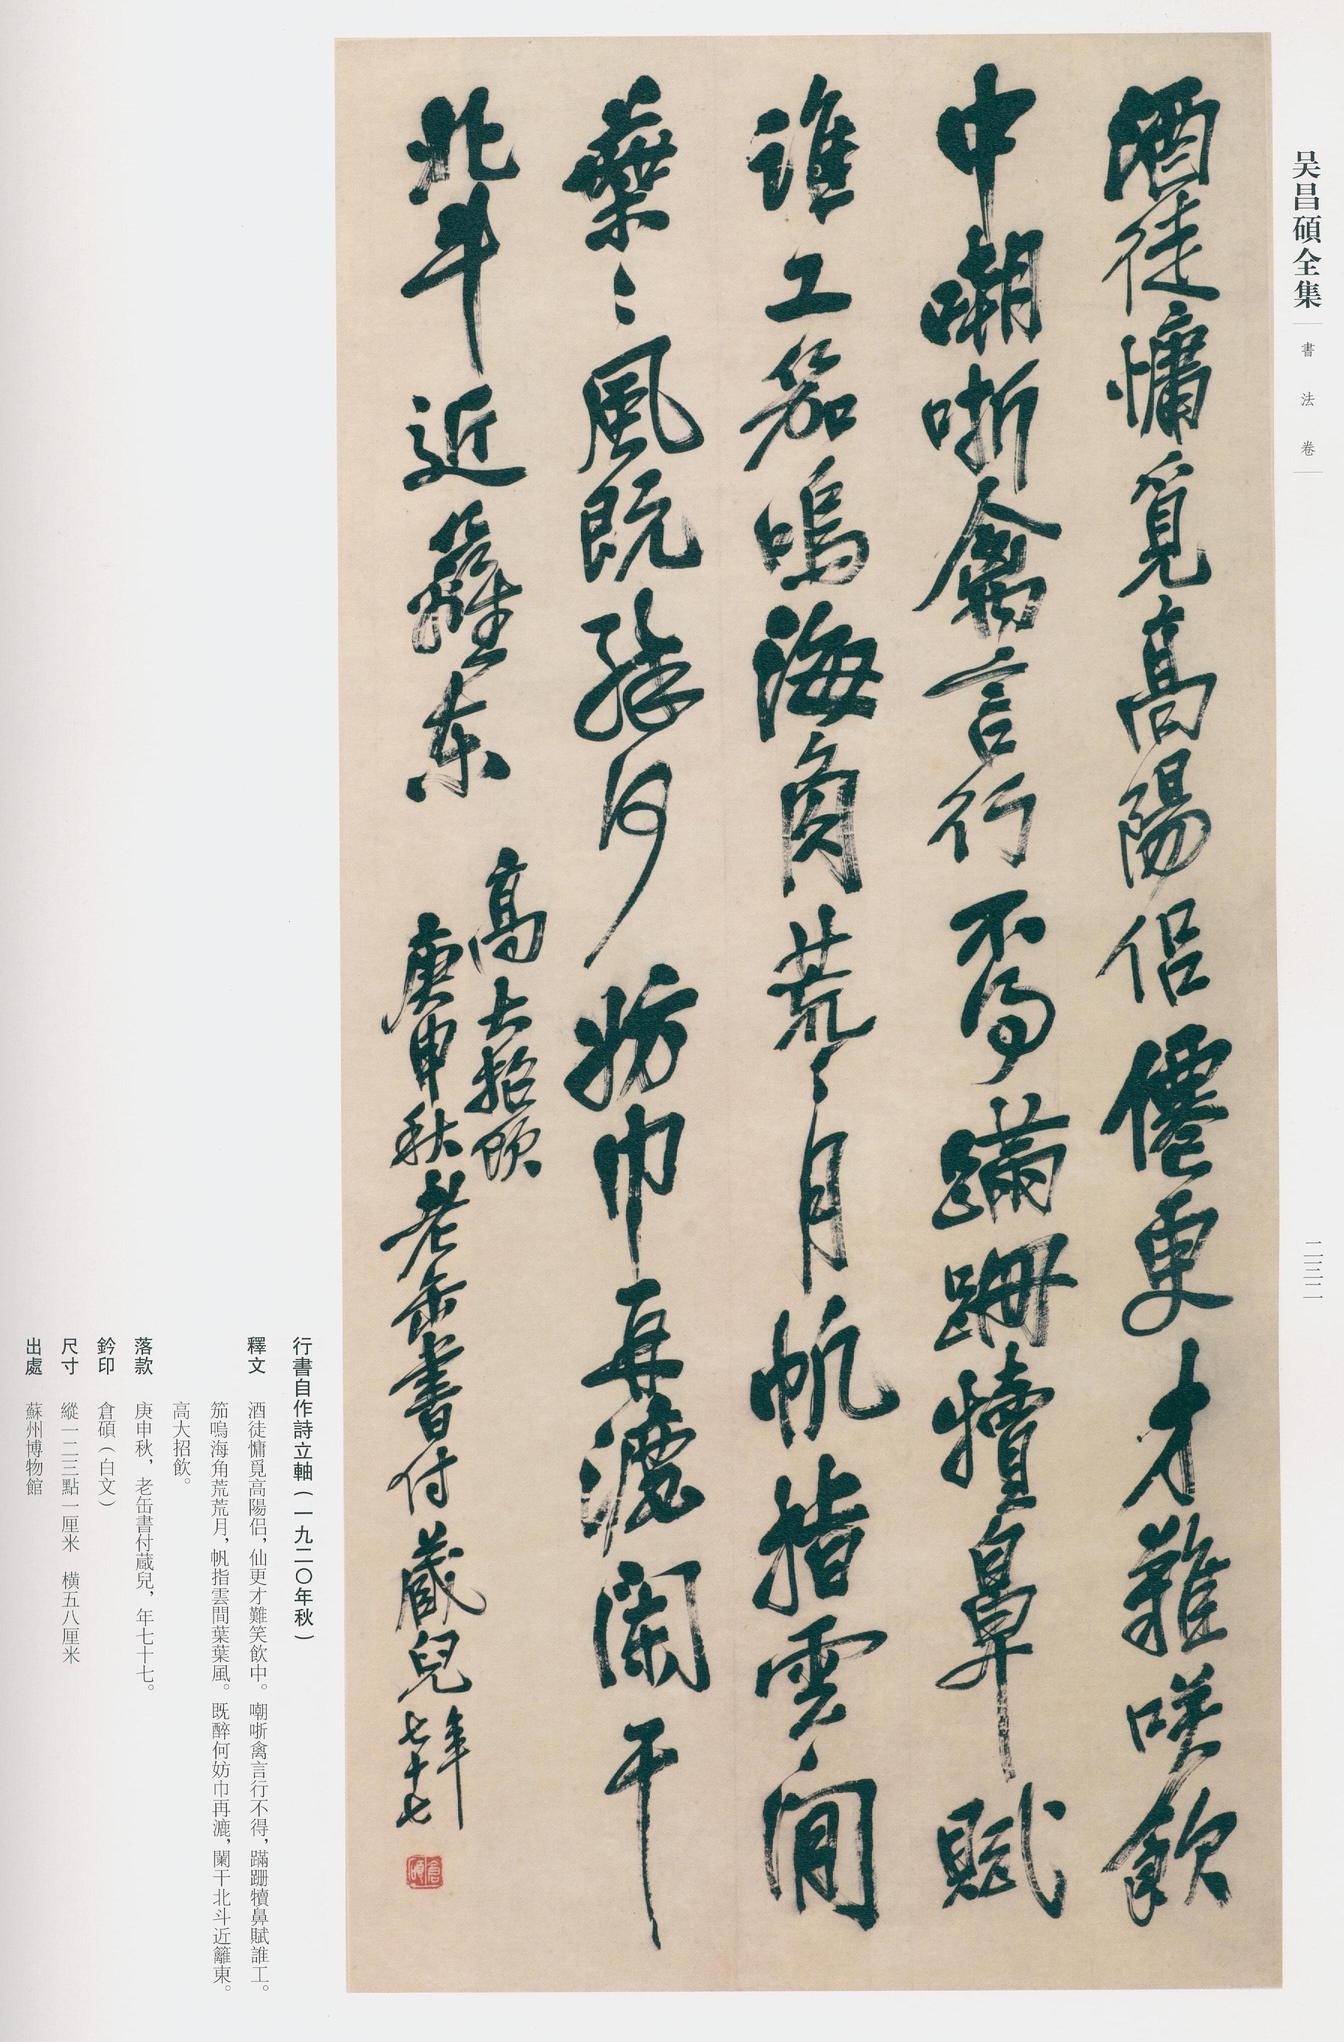 吴昌碩全集
書法卷
二三二
酒徒慵覓高陽侶僊更才難咲飲
中嘲哳禽言行不得蹣跚犢鼻賦
誰工笳鳴海角荒〻月帆指雲間
葉〻風既醉何妨巾再漉闌干
北斗近籬東
高大招飲
庚申秋老缶書付蔵兒年
七十七
倉碩
行書自作詩立軸（一九二〇年秋）
釋文　酒徒慵覓高陽侶，仙更才難笑飲中。嘲哳禽言行不得，蹣跚犢鼻賦誰工。
笳鳴海角荒荒月，帆指雲間葉葉風。既醉何妨巾再漉，闌干北斗近籬東。
高大招飲。
落款　庚申秋，老缶書付蔵兒，年七十七。
鈐印　倉碩（白文）
尺寸　縱一二三點一厘米　橫五八厘米
出處　蘇州博物館